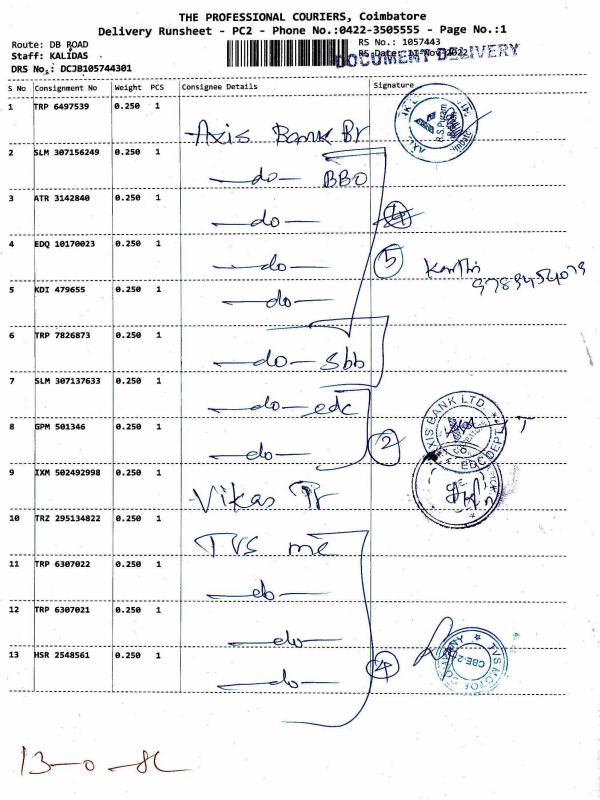 THE PROFESSIONAL COURIERS, Coimbatore
Delivery Runsheet - PC2 - Phone No.:0422-3505555 - Page No.:1
Route: DB ROAD
RS No.: 1057443
Staff: KALIDAS
RS Date: 11-Nov-2022
DOCUMENT DELIVERY
DRS No.: DCJB105744301
S No Consignment No Weight PCS Consignee Details Signature
1 TRP 6497539 0.250 1 Axis Bank Br
R.S.Puram
2 SLM 307156249 0.250 1 -do- BBO
3 ATR 3142840 0.250 1 -do-
4 EDQ 10170023 0.250 1 -do- 5
9789454079
5 KDI 479655 0.250 1 -do-
6 TRP 7826873 0.250 1 -do- Sbb
7 SLM 307137633 0.250 1 -do- edc
8 GPM 501346 0.250 1 -do- 2
AXIS BANK LTD.
EDC DEPT
9 IXM 502492998 0.250 1 Vikas Pr
10 TRZ 295134822 0.250 1 TVS me
11 TRP 6307022 0.250 1 -do-
12 TRP 6307021 0.250 1 -do-
13 HSR 2548561 0.250 1 -do- 4
TVS MOTOR COMPANY
13-0-